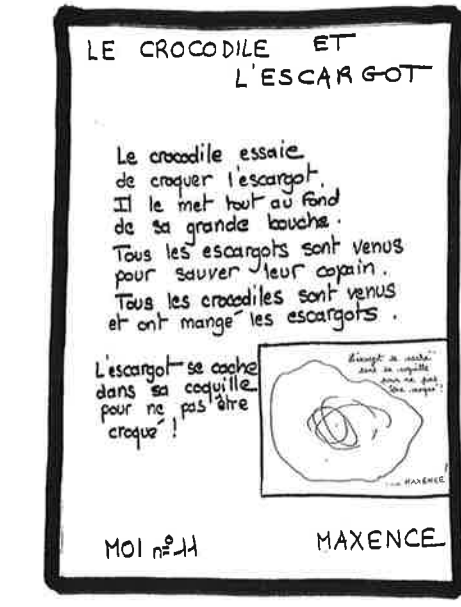 LE CROCODILE ET
L'ESCARGOT
Le crocodile essaie
de croquer l'escargot.
Il le met tout au fond
de sa grande bouche.
Tous les escargots sont venus
pour sauver leur copain.
Tous les crocodiles sont venus
et ont mangé les escargots.
L'escargot se cache
dans sa coquille
pour ne pas être
croqué !
L'escargot se cache
dans sa coquille
pour ne pas
être
MAXENCE
MOI n°11
MAXENCE